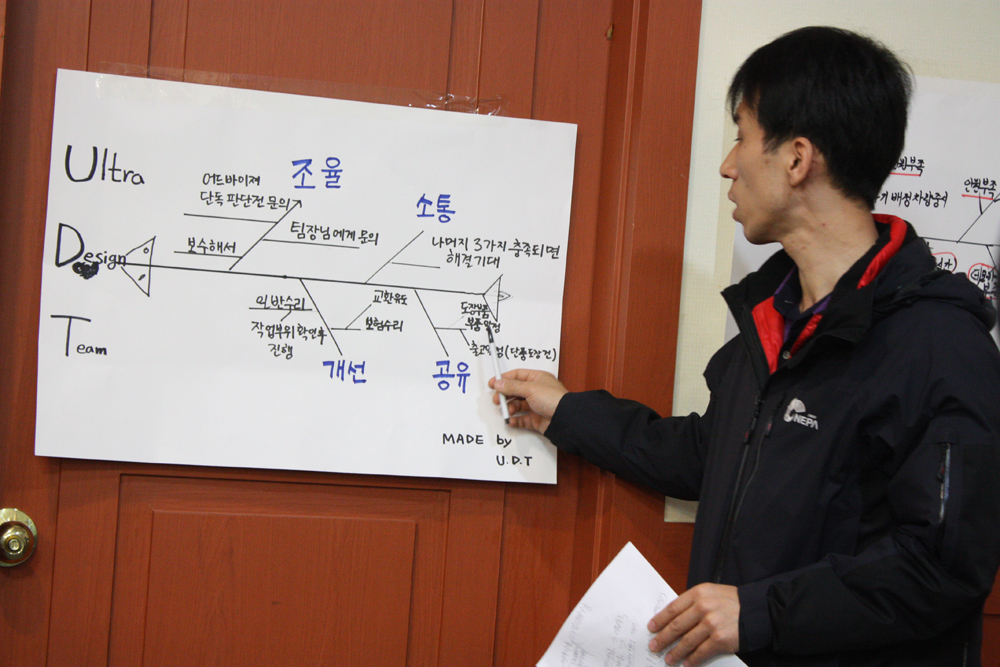 Ultra
Design
Team
조율
어드바이져
단독 판단전 문의
보수해서
팀장님에게 문의
소통
나머지 3가지 충족되면
해결기대
외반수리
작업부위 확인후
진행
교환유도
보험수리
개선
도장부품
부품
공유
(단품도장건)
MADE by
U.D.T
NEPA
안전부족
배정차량중에